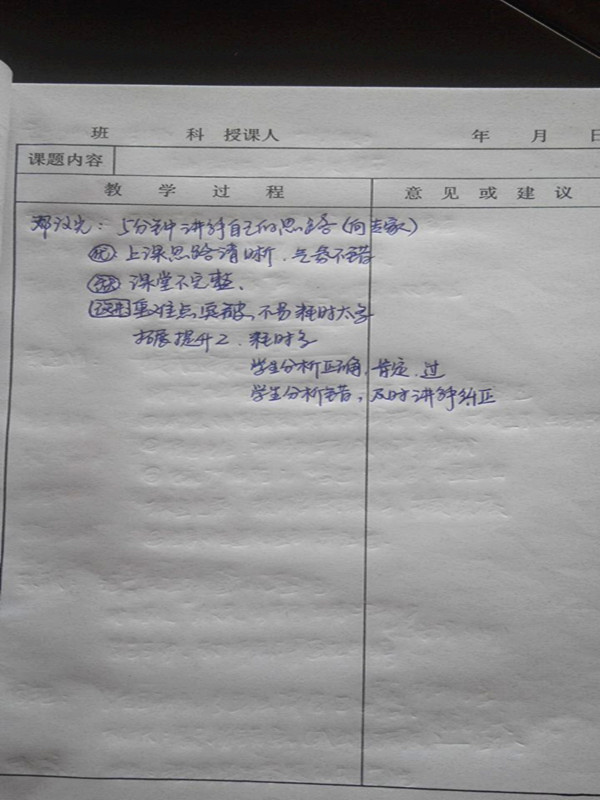 班 科 授课人 年 月 日
课题内容
教学过程 意见或建议
邓汉先：5分钟讲解自己的思路（向专家）
优：上课思路清晰，气氛不错
课堂不完整、
重难点突破，不易耗时太多
拓展提升2，耗时多
学生分析正确，肯定，过
学生分析错，及时讲解纠正